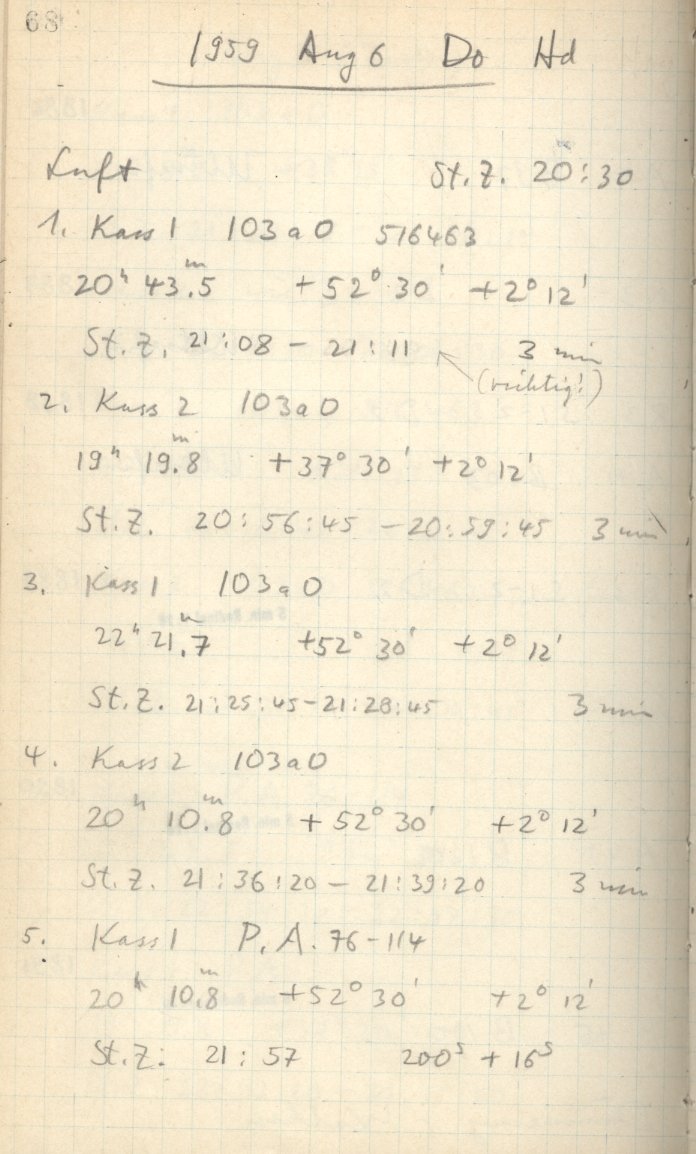 68
1959 Aug 6 Do Hd
Luft St.Z. 20:30
1. Kass 1 103aO 516463
20ʰ 43.ᵐ5 +52° 30' +2° 12'
St.Z. 21:08 – 21:11 3 min
(richtig!)
2. Kass 2 103aO
19ʰ 19.ᵐ8 +37° 30' +2° 12'
St.Z. 20:56:45 – 20:59:45 3 min
3. Kass 1 103aO
22ʰ 21.ᵐ7 +52° 30' +2° 12'
St.Z. 21:25:45 – 21:28:45 3 min
4. Kass 2 103aO
20ʰ 10.ᵐ8 +52° 30' +2° 12'
St.Z. 21:36:20 – 21:39:20 3 min
5. Kass 1 P.A. 76-114
20ʰ 10.ᵐ8 +52° 30' +2° 12'
St.Z: 21:57 200ˢ + 16ˢ